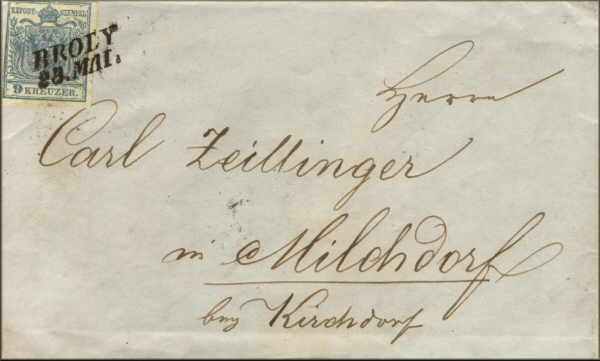 KKPOST-STEMPEL
BRODY
28.MAI.
9 KREUZER.
Herrn
Carl Zeillinger
in Milchdorf
bey Kirchdorf